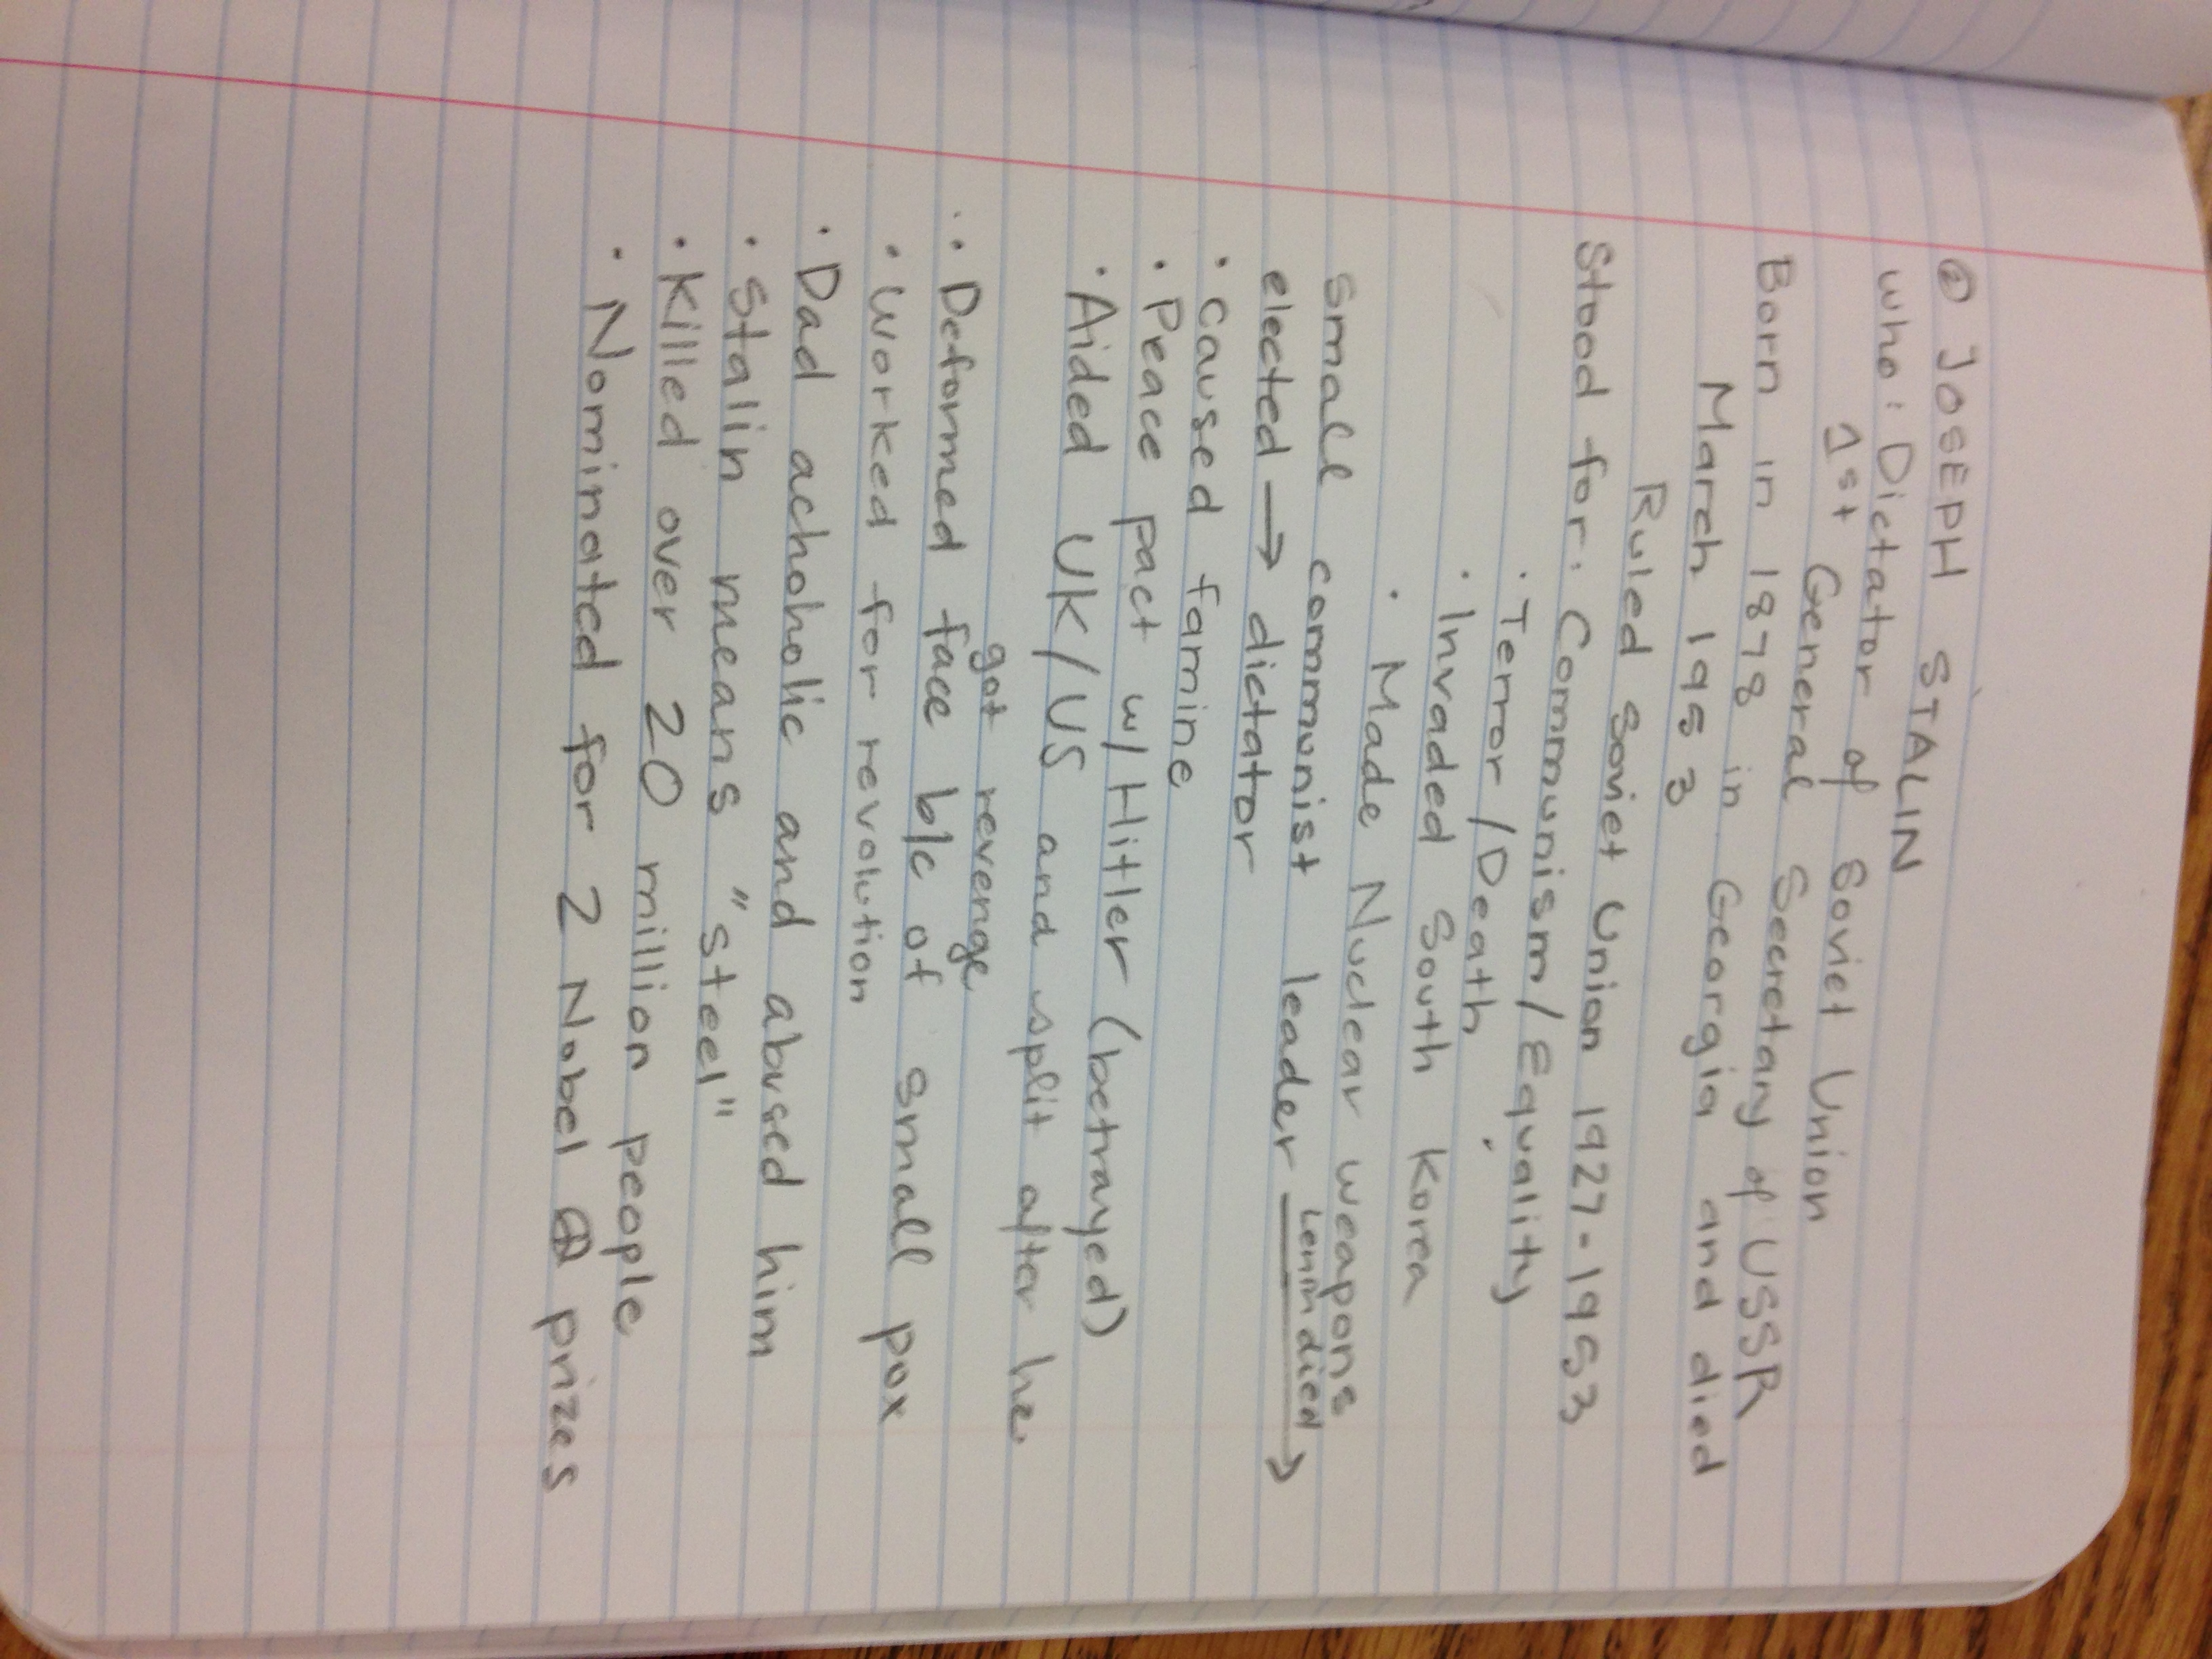 ② JOSEPH STALIN
who: Dictator of Soviet Union
1st General Secretary of USSR
Born in 1878 in Georgia and died
March 1953
Ruled Soviet Union 1927-1953
Stood for: Communism/Equality
· Terror/Death
· Invaded South Korea
· Made Nuclear weapons
small communist leader Lenin died →
elected → dictator
· caused famine
· Peace pact w/ Hitler (betrayed)
· Aided UK/US and split after he
got revenge
· Deformed face b/c of small pox
· Worked for revolution
· Dad achoholic and abused him
· Stalin means "steel"
· Killed over 20 million people
· Nominated for 2 Nobel prizes